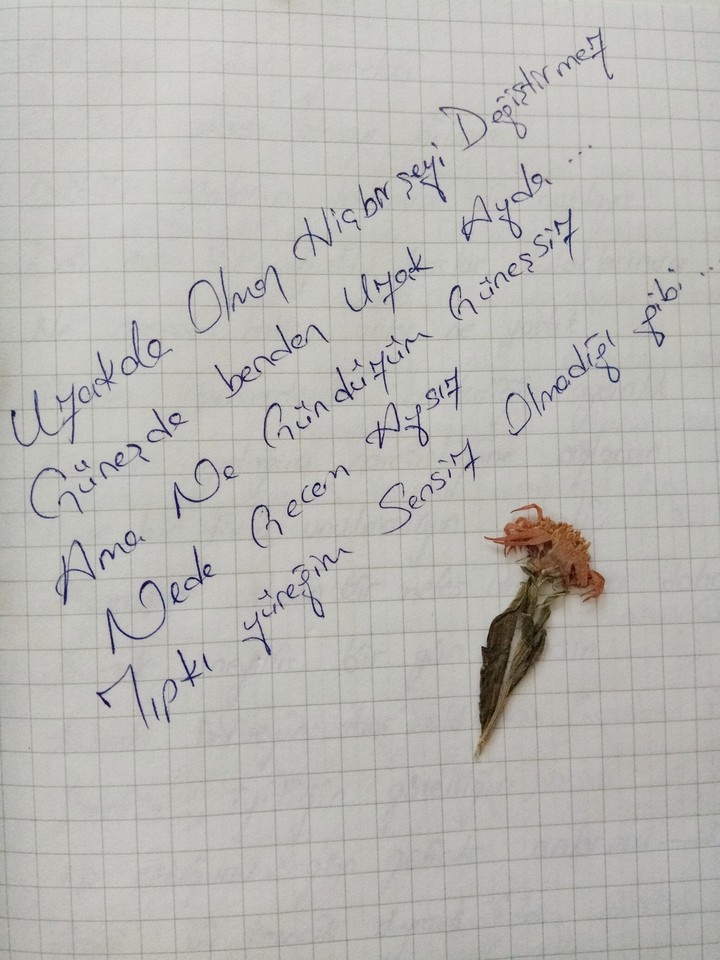 Uzakda Olman Hiçbir şeyi Değiştirmez
Güneşde benden Uzak Ayda ...
Ama Ne Gündüzüm Güneşsiz
Nede Gecem Aysız
Tıpkı yüreğim Sensiz Olmadığı gibi ...